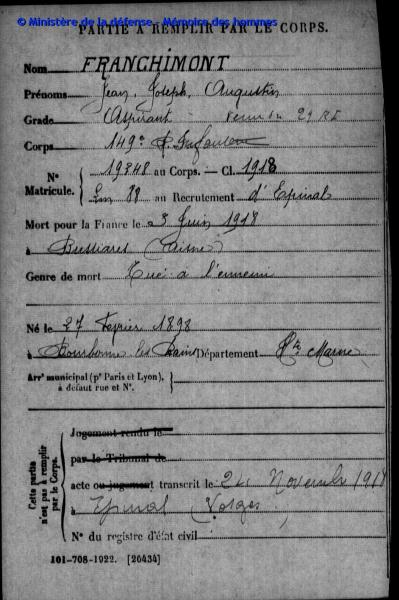 © Ministère de la défense - Mémoire des hommes
PARTIE À REMPLIR PAR LE CORPS.
Nom FRANCHIMONT
Prénoms Jean Joseph Augustin
Grade Aspirant
Corps 149e R. Infanterie
N° Matricule. { 19348 au Corps. — Cl. 1918
Em 88 au Recrutement d'Epinal
Mort pour la France le 3 Juin 1918
à Bussiares (Aisne)
Genre de mort Tué à l'ennemi
Né le 27 Février 1898
à Bourbonne les Bains Département Hte Marne
Arrt municipal (pr Paris et Lyon), à défaut rue et N°. }
Cette partie n'est pas à remplir par le Corps.
Jugement rendu le
par le Tribunal de
acte ou jugement transcrit le 24 Novembre 1918
à Epinal Vosges
N° du registre d'état civil
101-708-1922. [26434]